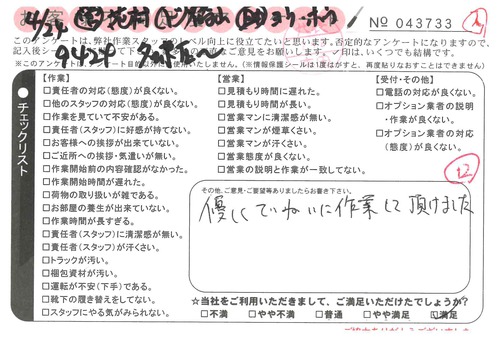 No 043733
このアンケートは、弊社作業スタッフのレベル向上に役立てたいと思います。否定的なアンケートになりますので
記入後シー
なご意見をお願いします。マ印は、いくつでも結構です。
※このアンケートは、
目的以外に使用いたしません。(※情報保護シールは1度はがすと、再度貼りなおすことはできません)
チェックリスト
【作業】
□責任者の対応(態度)が良くない。
□他のスタッフの対応(態度)が良くない。
□作業を見ていて不安がある。
□責任者(スタッフ)に好感が持てない。
□お客様への挨拶が出来ていない。
□ご近所への挨拶・気遣いが無い。
□作業開始前の内容確認がなかった。
□作業開始時間が遅れた。
□荷物の取り扱いが雑である。
□お部屋の養生が出来ていない。
□作業時間が長すぎる。
□責任者(スタッフ)に清潔感が無い。
□責任者(スタッフ)が汗くさい。
□トラックが汚い。
□梱包資材が汚い。
□運転が不安(下手)である。
□靴下の履き替えをしてない。
□スタッフにやる気がみられない。
【営業】
□見積もり時間に遅れた。
□見積もり時間が長い。
□営業マンに清潔感が無い。
□営業マンが煙草くさい。
□営業マンが汗くさい。
□営業態度が良くない。
□営業の説明と作業が一致してない。
【受付・その他】
□電話の対応が良くない。
□オプション業者の説明
・作業が良くない。
□オプション業者の対応
(態度)が良くない。
12
その他、ご意見・ご要望等ありましたらお書き下さい。
優しくていねいに作業して頂けました
☆当社をご利用いただきまして、ご満足いただけたでしょうか?
□不満 □やや不満 □普通 □やや満足 □満足